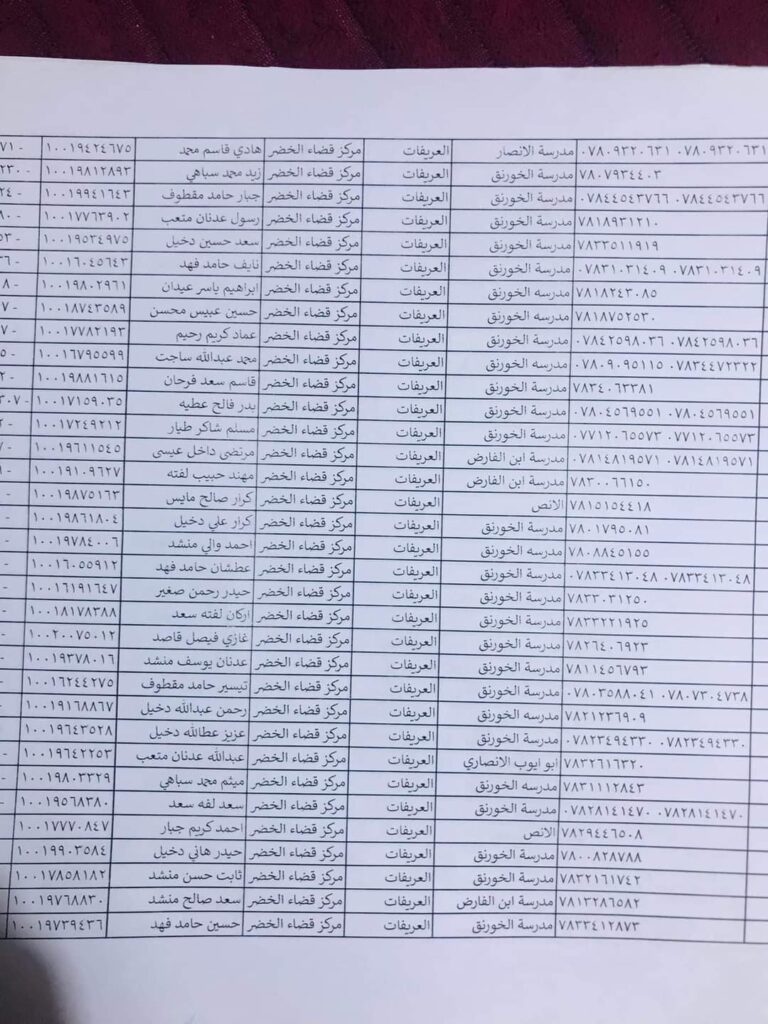 ٠٧٨٠٩٣٢٠٦٣١ ٠٧٨٠٩٣٢٠٦٣١ مدرسة الانصار العريفات مركز قضاء الخضر هادي قاسم محمد ١٠٠١٩٤٢٤٦٧٥ - ٧١
٧٨٠٧٩٣٤٤٠٣ مدرسة الخورنق العريفات مركز قضاء الخضر زيد محمد سباهي ١٠٠١٩٨١٢٨٩٣ - ٢٣٠
٠٧٨٤٤٥٤٣٧٦٦ ٠٧٨٤٤٥٤٣٧٦٦ مدرسة الخورنق العريفات مركز قضاء الخضر جبار حامد مقطوف ١٠٠١٩٩٤١٦٤٣ - ٢٤
٧٨١٨٩٣١٢١٠ مدرسة الخورنق العريفات مركز قضاء الخضر رسول عدنان متعب ١٠٠١٧٧٦٣٩٠٢ - ٨٠
٧٨٣٣٥١١٩١٩ مدرسة الخورنق العريفات مركز قضاء الخضر سعد حسين دخيل ١٠٠١٩٥٣٤٩٧٥ - ٥٣
٠٧٨٣١٠٣١٤٠٩ ٠٧٨٣١٠٣١٤٠٩ مدرسه الخورنق العريفات مركز قضاء الخضر نايف حامد فهد ١٠٠١٦٠٤٥٦٤٣ - ٣٦
٧٨١٨٢٤٣٠٨٥ مدرسه الخورنق العريفات مركز قضاء الخضر ابراهيم ياسر عيدان ١٠٠١٩٨٠٢٩٦١ - ٨
٧٨١٨٧٥٢٥٣٠ مدرسه الخورنق العريفات مركز قضاء الخضر حسين عبيس محسن ١٠٠١٨٧٤٣٥٨٩ - ٧
٠٧٨٤٢٥٩٨٠٣٦ ٠٧٨٤٢٥٩٨٠٣٦ مدرسه الخورنق العريفات مركز قضاء الخضر عماد كريم رحيم ١٠٠١٧٧٨٢١٩٣ - ٧
٠٧٨٣٤٤٧٢٣٢٢ ٠٧٨٠٩٠٩٥١١٥ مدرسه الخورنق العريفات مركز قضاء الخضر محمد عبدالله ساجت ١٠٠١٦٧٩٥٥٩٩
٧٨٣٤٠٦٣٣٨١ مدرسة الخورنق العريفات مركز قضاء الخضر قاسم سعد فرحان ١٠٠١٩٨٨١٦١٥
٠٧٨٠٤٥٦٩٥٥١ ٠٧٨٠٤٥٦٩٥٥١ مدرسة الخورنق العريفات مركز قضاء الخضر بدر فالح عطيه ١٠٠١٧١٥٩٠٣٥ - ٣٠٧
٠٧٧١٢٠٦٥٥٧٣ ٠٧٧١٢٠٦٥٥٧٣ مدرسة الخورنق العريفات مركز قضاء الخضر مسلم شاكر طيار ١٠٠١٧٢٤٩٢١٢
٠٧٨١٤٨١٩٥٧١ ٠٧٨١٤٨١٩٥٧١ مدرسة ابن الفارض العريفات مركز قضاء الخضر مرتضى داخل عيسى ١٠٠١٩٦١١٥٤٥
٧٨٣٠٠٦٦١٥٠ مدرسة ابن الفارض العريفات مركز قضاء الخضر مهند حبيب لفته ١٠٠١٩١٠٩٦٢٧
٧٨١٥١٥٤٤١٨ الانص العريفات مركز قضاء الخضر كرار صالح مايس ١٠٠١٩٨٧٥١٦٣ -
٧٨٠١٧٩٥٠٨١ مدرسة الخورنق العريفات مركز قضاء الخضر كرار علي دخيل ١٠٠١٩٨٦١٨٠٤ -
٧٨٠٨٨٤٥١٥٥ مدرسه الخورنق العريفات مركز قضاء الخضر احمد والي منشد ١٠٠١٩٧٨٤٠٠٦ -
٠٧٨٣٣٤١٣٠٤٨ ٠٧٨٣٣٤١٣٠٤٨ مدرسة الخورنق العريفات مركز قضاء الخضر عطشان حامد فهد ١٠٠١٦٠٥٥٩١٢ -
٧٨٣٣٠٣١٢٥٠ مدرسة الخورنق العريفات مركز قضاء الخضر حيدر رحمن صغير ١٠٠١٦١٩١٦٤٧ -
٧٨٣٣٢٢١٩٢٥ مدرسة الخورنق العريفات مركز قضاء الخضر اركان لفته سعد ١٠٠١٨١٧٨٣٨٨ -
٧٨٢٦٤٠٦٩٢٣ مدرسة الخورنق العريفات مركز قضاء الخضر غازي فيصل قاصد ١٠٠٢٠٠٧٥٠١٢ -
٧٨١١٤٥٦٧٩٣ مدرسة الخورنق العريفات مركز قضاء الخضر عدنان يوسف منشد ١٠٠١٩٣٧٨٠١٦ -
٠٧٨٠٧٣٠٤٧٣٨ ٠٧٨٠٣٥٨٨٠٤١ مدرسة الخورنق العريفات مركز قضاء الخضر تيسير حامد مقطوف ١٠٠١٦٢٤٤٢٧٥ -
٧٨٢١٢٣٦٩٠٩ مدرسه الخورنق العريفات مركز قضاء الخضر رحمن عبدالله دخيل ١٠٠١٩١٦٨٨٦٧
٠٧٨٢٣٤٩٤٣٣٠ ٠٧٨٢٣٤٩٤٣٣٠ مدرسة الخورنق العريفات مركز قضاء الخضر عزيز عطالله دخيل ١٠٠١٩٦٤٣٥٢٨
٧٨٣٢٦١٦٣٢٠ ابو ايوب الانصاري العريفات مركز قضاء الخضر عبدالله عدنان متعب ١٠٠١٩٦٤٢٢٥٣ -
٧٨٣١١١٢٨٤٣ مدرسه الخورنق العريفات مركز قضاء الخضر ميثم محمد سباهي ١٠٠١٩٨٠٣٣٢٩ -
٠٧٨٢٨١٤١٤٧٠ ٠٧٨٢٨١٤١٤٧٠ مدرسة الخورنق العريفات مركز قضاء الخضر سعد لفه سعد ١٠٠١٩٥٦٨٣٨٠ -
٧٨٢٩٤٤٦٥٠٨ الانص العريفات مركز قضاء الخضر احمد كريم جبار ١٠٠١٧٧٧٠٨٤٧ -
٧٨٠٠٨٢٨٧٨٨ مدرسة الخورنق العريفات مركز قضاء الخضر حيدر هاني دخيل ١٠٠١٩٩٠٣٥٨٤ -
٧٨٣٢١٦١٧٤٢ مدرسة الخورنق العريفات مركز قضاء الخضر ثابت حسن منشد ١٠٠١٧٨٥٨١٨٢ -
٧٨١٣٢٨٦٥٨٢ مدرسة ابن الفارض العريفات مركز قضاء الخضر سعد صالح منشد ١٠٠١٩٧٦٨٨٣٠ -
٧٨٣٣٤١٢٨٧٣ مدرسة الخورنق العريفات مركز قضاء الخضر حسين حامد فهد ١٠٠١٩٧٣٩٤٣٦ -